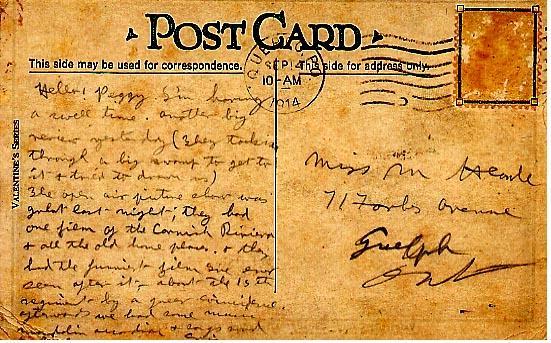 POST CARD
This side may be used for correspondence.
This side for address only.
SEP 14
10-AM
1914
VALENTINE'S SERIES
Hello Peggy I'm having
a swell time. another big
review yesterday (they took us
through a big swamp to get to
it & tried to drown us)
The open air picture show was
great last night; they had
one film of the Cornish Riviera
& all the old home places. & they
had the funniest film I've ever
seen after it, about the 15th
regiment by a queer coincidence.
afterwards we had some music
mandolin accordion & songs
Miss M
71 Forbes Avenue
Guelph
Ont